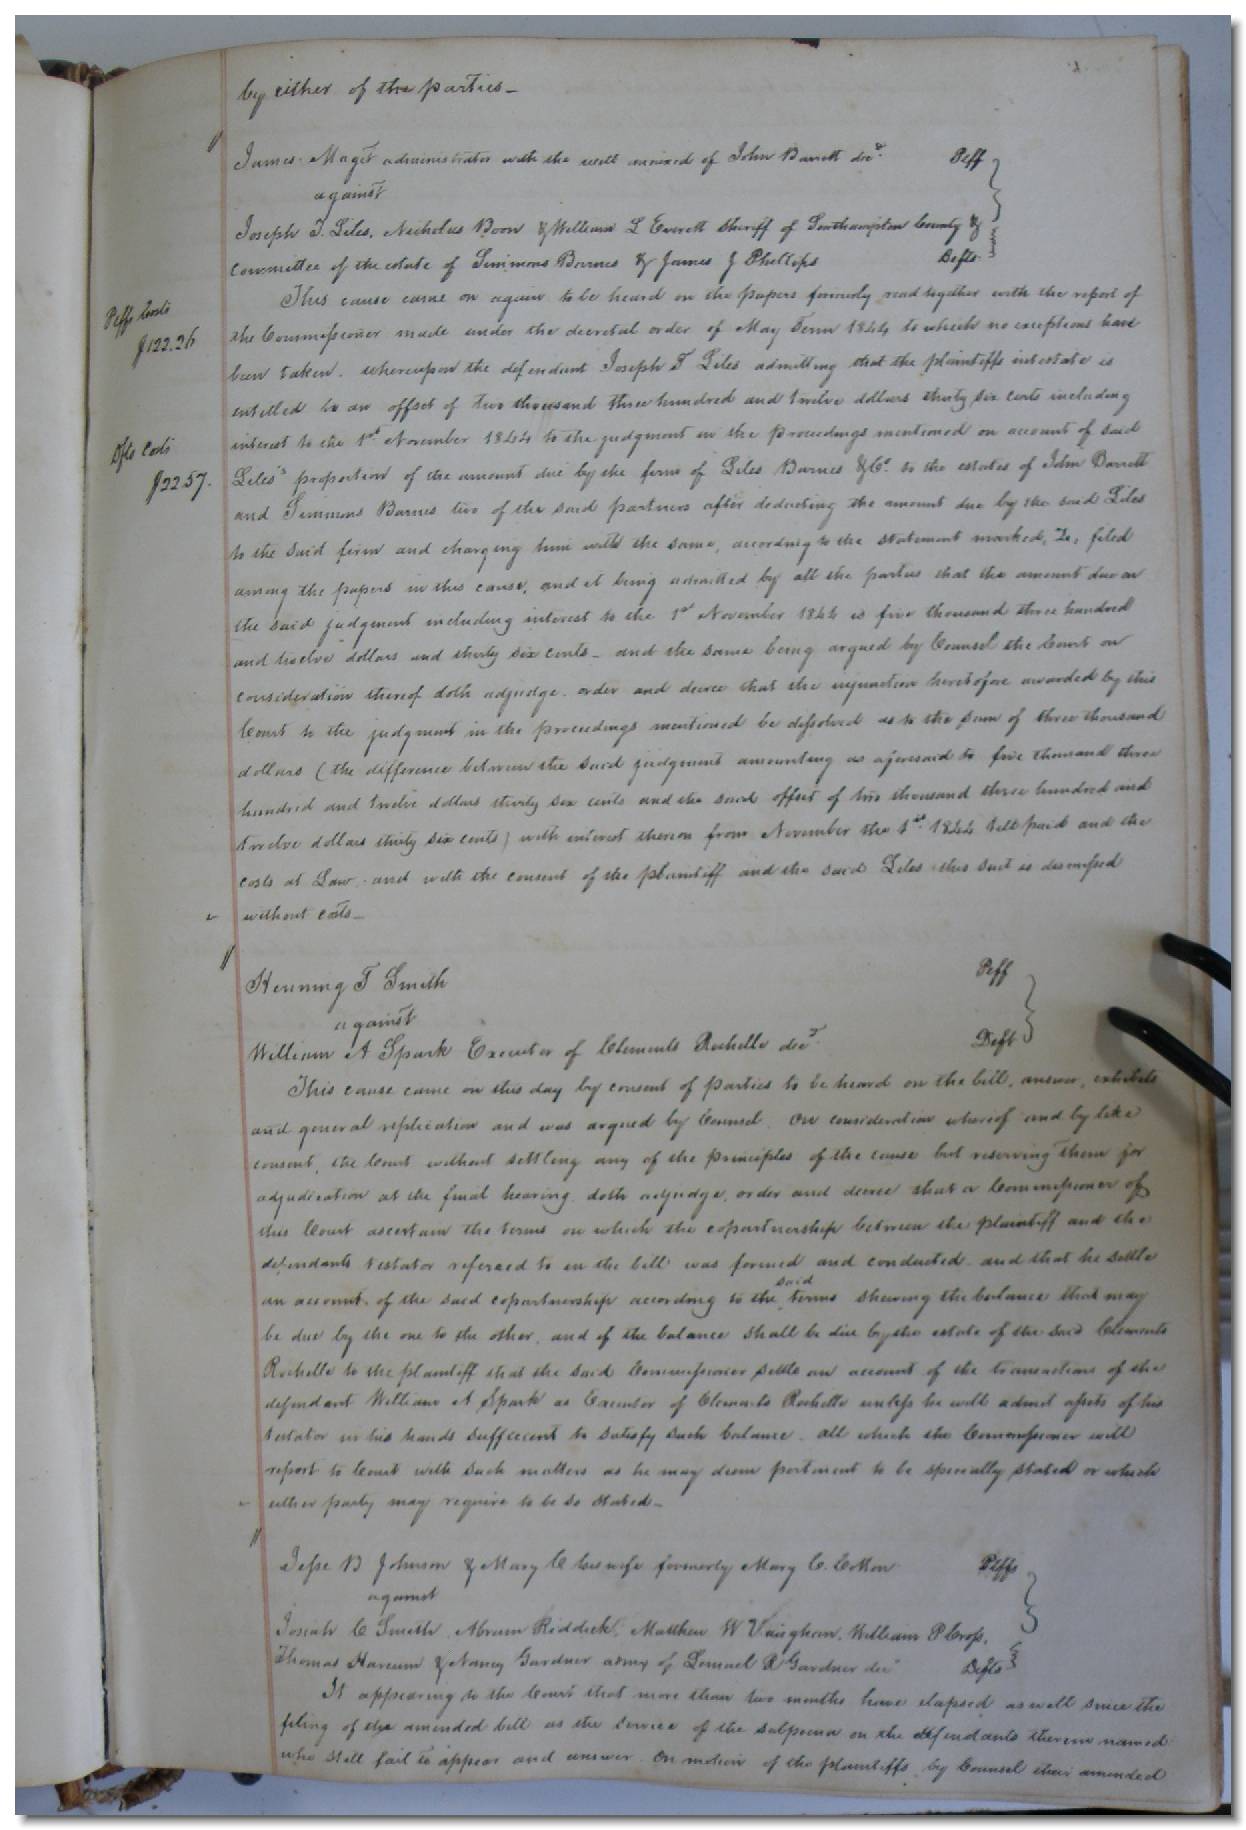 by either of the parties_
James Maget administrator with the will annexed of John Barrett decd. Peff
against
Joseph T. Liles, Nicholas Boon & William L Everett Sheriff of Southampton County &
committee of the estate of Simmons Barnes & James J Phillips Defts.
This cause came on again to be heard on the papers formerly read together with the report of
Peffs Costs
the Commissioner made under the decretal order of May Term 1844 to which no exceptions have
$122.26
been taken. whereupon the defendant Joseph T Liles admitting that the plaintiffs intestate is
entitled to an offset of two thousand three hundred and twelve dollars thirty six cents including
Defts Costs
interest to the 1st November 1844 to the judgment in the proceedings mentioned on account of said
$22.57.
Liles's proportion of the amount due by the firm of Liles Barnes & Co. to the estates of John Barrett
and Simmons Barnes two of the said partners after deducting the amount due by the said Liles
to the said firm and charging him with the same, according to the statement marked, , filed
among the papers in this cause, and it being admitted by all the parties that the amount due on
the said judgment including interest to the 1st November 1844 is five thousand three hundred
and twelve dollars and thirty six cents_ and the same being argued by Counsel the Court on
consideration thereof doth adjudge. order and decree that the injunction heretofore awarded by this
Court to the judgment in the proceedings mentioned be dissolved as to the sum of three thousand
dollars (the difference between the said judgment amounting as aforesaid to five thousand three
hundred and twelve dollars thirty six cents and the said offset of two thousand three hundred and
twelve dollars thirty six cents) with interest thereon from November the 1st 1844 till paid and the
costs at Law. and with the consent of the plaintiff and the said Liles this suit is dismissed
without costs_
Peff
Henning T Smith
against
William A Spark Executor of Clements Rochelle decd. Deft
This cause came on this day by consent of parties to be heard on the bill, answer, exhibits
and general replication and was argued by Counsel. On consideration whereof and by like
consent, the Court without settling any of the principles of the cause but reserving them for
adjudication at the final hearing doth adjudge, order and decree that a Commissioner of
this Court ascertain the terms on which the copartnership between the plaintiff and the
defendants testator referred to in the bill was formed and conducted and that he settle
an account of the said copartnership according to the said terms shewing the balance that may
be due by the one to the other, and if the balance shall be due by the estate of the said Clements
Rochelle to the plaintiff that the said Commissioner settle an account of the transactions of the
defendant William A Spark as Executor of Clements Rochelle unless he will admit assets of his
testator in his hands sufficient to satisfy such balance. all which the Commissioner will
report to Court with such matters as he may deem pertinent to be specially stated or which
either party may require to be so stated_
Jesse B Johnson & Mary C his wife formerly Mary C. Cotton Peffs
against
Josiah C Smith, Abram Riddick, Matthew W Vaughan, William P Cross,
Thomas & Nancy Gardner admx of Lemuel R Gardner decd Defts
It appearing to the Court that more than two months have elapsed as well since the
filing of the amended bill as the service of the subpoena on the defendants therein named
who still fail to appear and answer. On motion of the plaintiffs by Counsel their amended